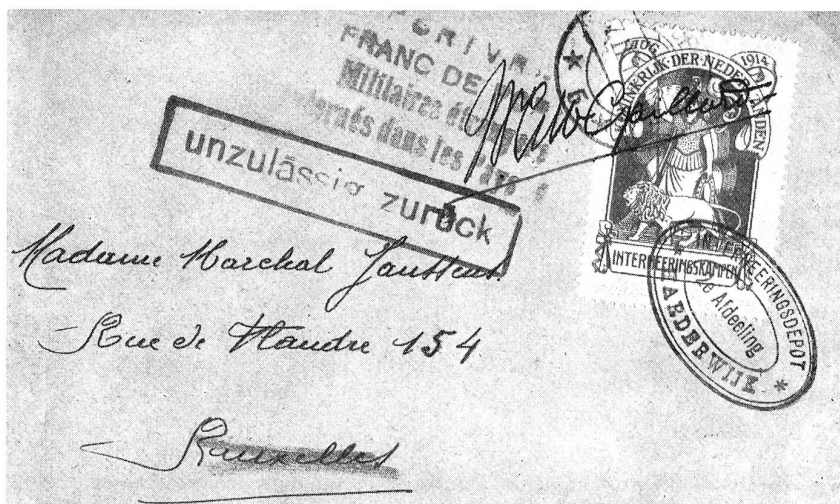 FRANC DE
Militaires
dans les
unzulässig zurück
AUG. 1914
KONINKRIJK·DER·NEDERLANDEN
INTERNEERINGSKAMPEN
INTERNEERINGSDEPOT
Afdeeling
HARDERWIJK *
Madame Marchal Janssens
Rue de Flandre 154
Bruxelles